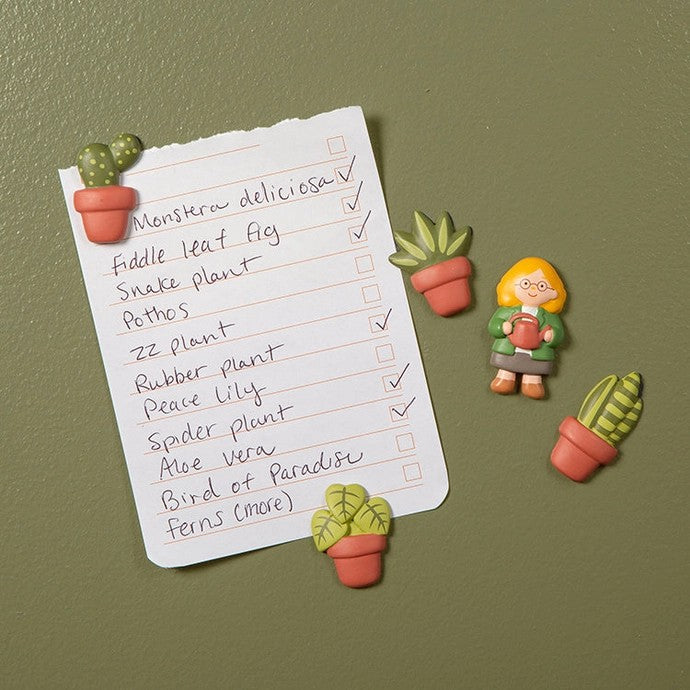 Monstera deliciosa
Fiddle leaf fig
Snake plant
Pothos
ZZ plant
Rubber plant
Peace lily
Spider plant
Aloe vera
Bird of Paradise
Ferns (more)